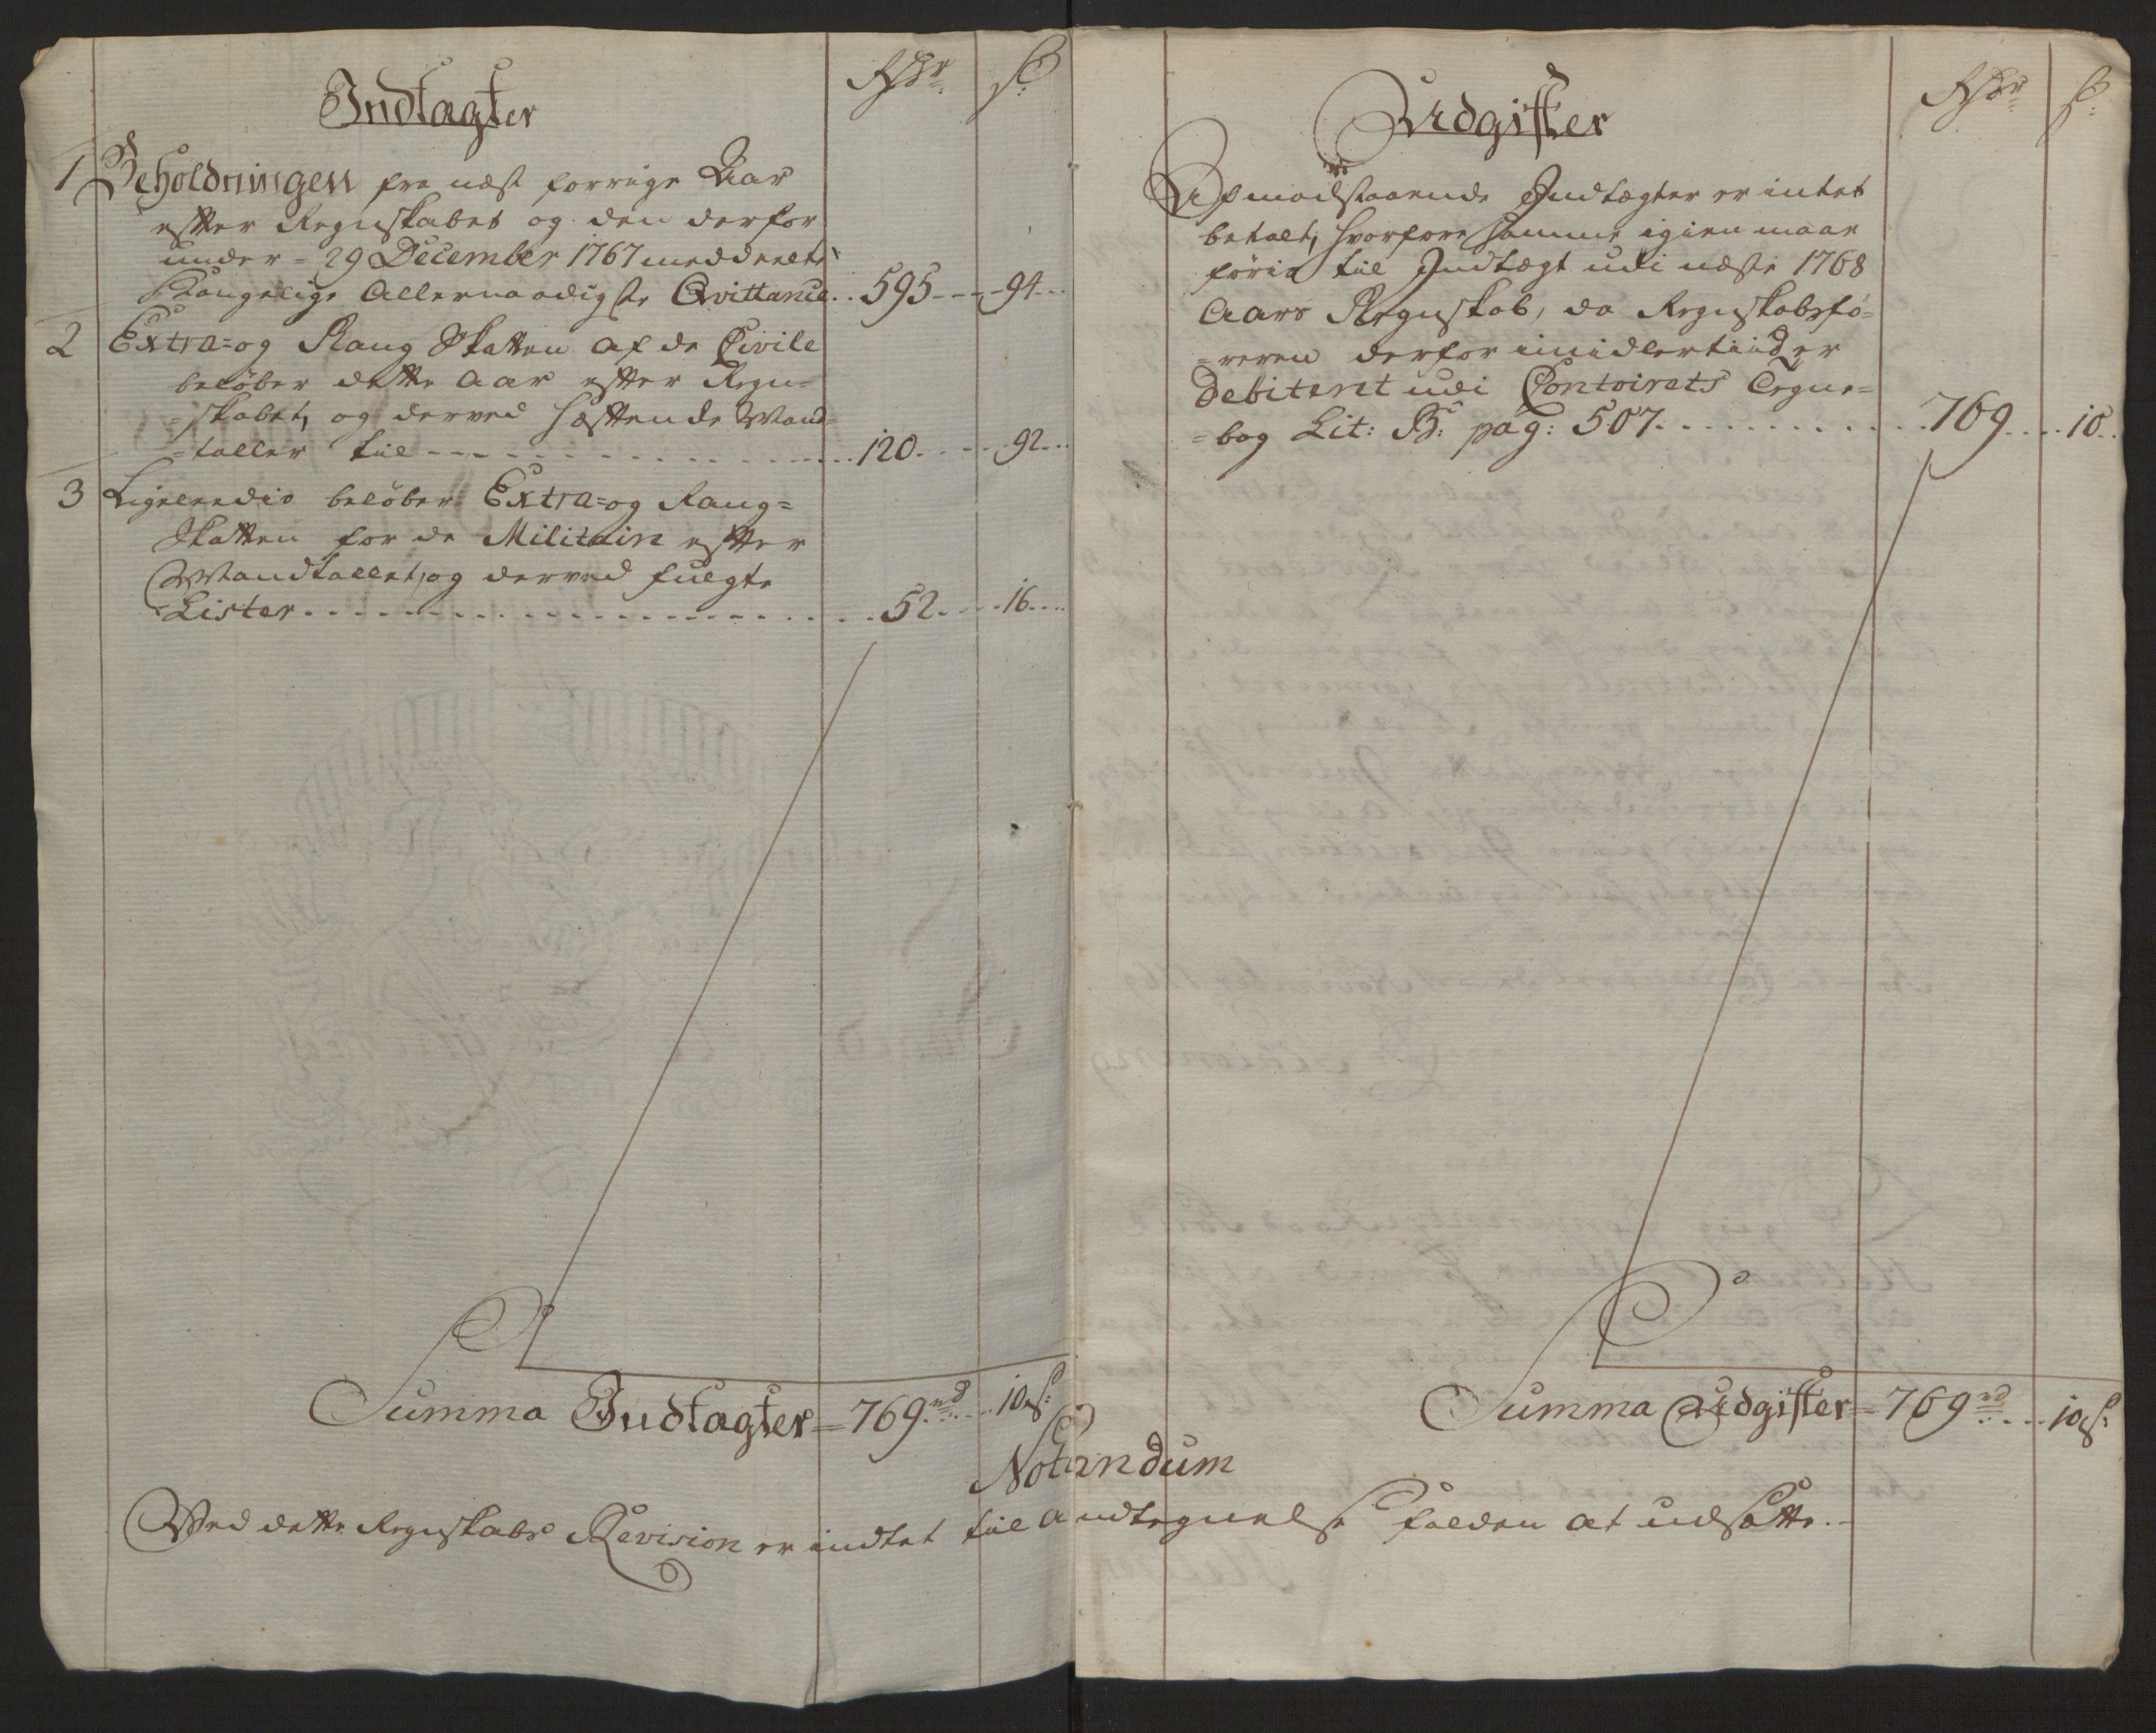 Indtægter
Rdr: ß:
1 Beholdningen fra næst forrige Aar
efter Regnskabet og den derfor
under = 29 December 1767 meddeelte
Kongelige Allernaadigste Qvittance.. 595 - - - 94 - - -
2 Extra= og Rang Skatten af de Civile
beløber dette Aar efter Regn=
=skabet, og derved hæftende Mand=
=taller til - - - 120 - - - 92 - - -
3 Ligeleedis beløber Extra= og Rang=
Skatten for de Militaire efter
Mandtallet, og derved fulgte
Lister - - - 52 - - - 16 - - -
Summa Indtægter = 769 rd - - 10 ß:
Udgifter
Rdr: ß:
Af modstaaende Indtægter er intet
betalt, hvorfore samme igien maae
føris til Indtægt udi næste 1768
Aars Regnskab, da Regnskabsfø=
=reren derfor imidlertiid er
debiteret udi Contoirets Tegne=
=bog Lit: B: pag: 507 - - - 769 - - - 10 - -
Summa Udgifter = 769 rd - - - 10 ß:
Notandum
Ved dette Regnskabs Revision er indtet til Andtegnelse falden at udsætte.